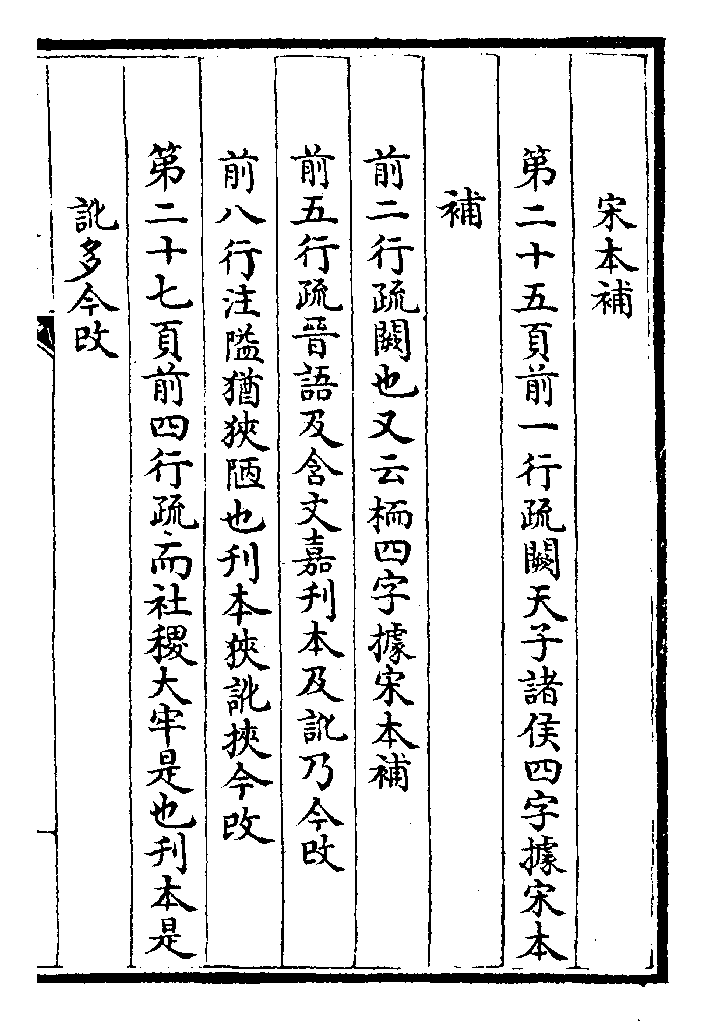 宋本補
第二十五頁前一行疏闕天子諸侯四字據宋本
補
前二行疏闕也又云栭四字據宋本補
前五行疏晉語及含文嘉刋本及訛乃今改
前八行注隘猶狹陋也刋本狹訛挾今改
第二十七頁前四行疏而社稷大牢是也刋本是
訛多今改